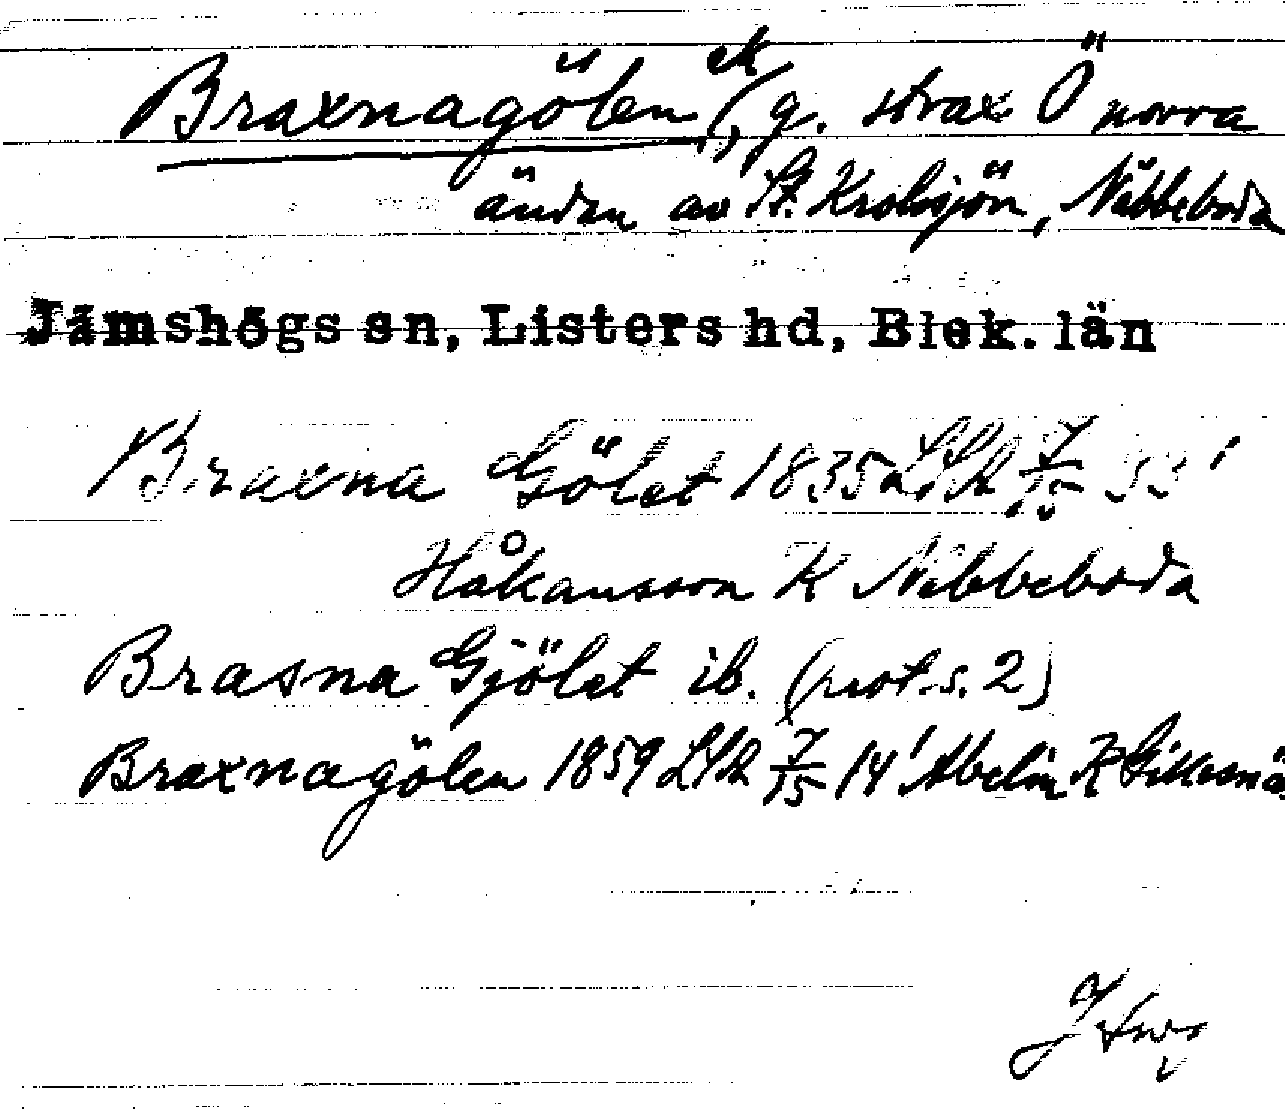 Braxnagölen, ek (g. strax Ö norra
ändan av St. Kroksjön, Nibbeboda
Jämshögs sn, Listers hd, Blek. län
Braxna Gölet 1835 LSA 7/15 33'
Håkansson K Nibbeboda
Brasna Gjölet ib. (prot. s. 2)
Braxnagölen 1859 LSA 7/15 14' Abelin K Gillesnäs